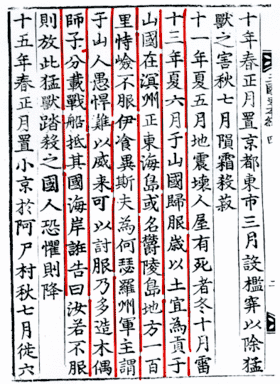 十年春正月置京都東市三月設檻穽以除猛
獸之害秋七月隕霜殺菽
十一年夏五月地震壞人屋有死者冬十月雷
十三年夏六月于山國歸服歲以土宜爲貢于
山國在溟州正東海島或名欝陵島地方一百
里恃嶮不服伊飡異斯夫爲何瑟羅州軍主謂
于山人愚悍難以威來可以計服乃多造木偶
師子分載戰船抵其國海岸誑告曰汝若不服
則放此猛獸踏殺之國人恐懼則降
十五年春正月置小京於阿尸村秋七月徙六